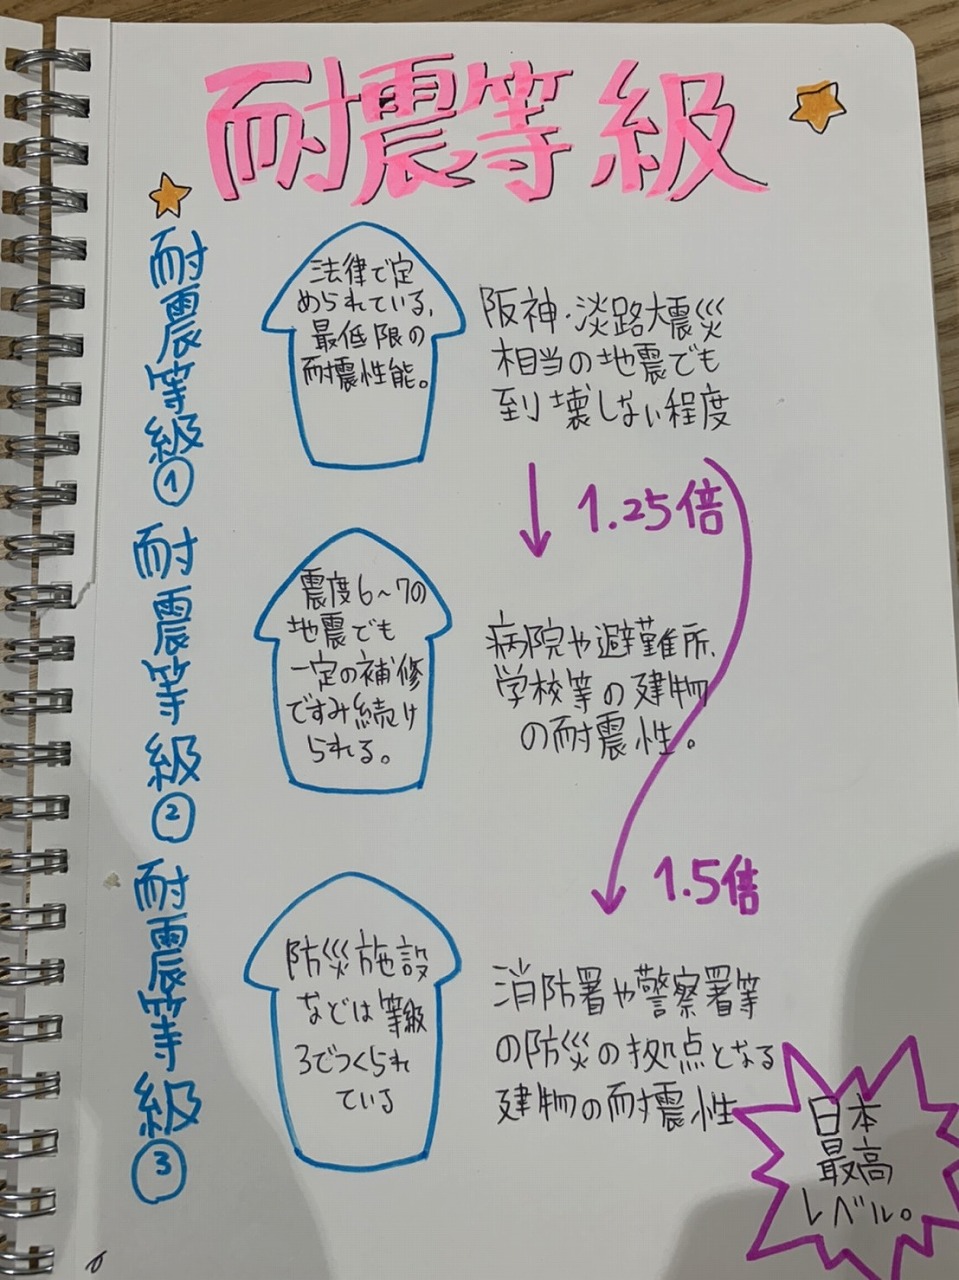 耐震等級
耐震等級①
法律で定
められている、
最低限の
耐震性能。
阪神・淡路大震災
相当の地震でも
到壊しない程度
1.25倍
耐震等級②
震度6~7の
地震でも
一定の補修
ですみ続け
られる。
病院や避難所、
学校等の建物
の耐震性。
1.5倍
耐震等級③
防災施設
などは等級
3でつくられ
ている
消防署や警察署等
の防災の拠点となる
建物の耐震性
日本
最高
レベル。